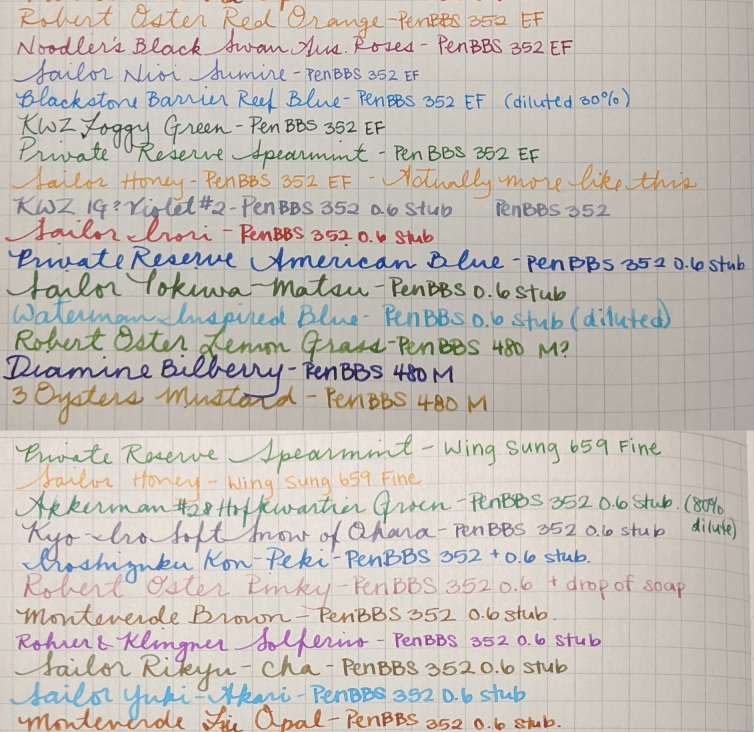 Robert Oster Red Orange - PenBBS 352 EF
Noodler's Black Swan Aus. Roses - PenBBS 352 EF
Sailor Nioi Sumire - PenBBS 352 EF
Blackstone Barrier Reef Blue - PenBBS 352 EF (diluted 30%)
KWZ Foggy Green - PenBBS 352 EF
Private Reserve Spearmint - PenBBS 352 EF
Sailor Honey - PenBBS 352 EF - Actually more like this
KWZ IG? Violet #2 - PenBBS 352 0.6 Stub PenBBS 352
Sailor Irori - PenBBS 352 0.6 Stub
Private Reserve American Blue - PenBBS 352 0.6 Stub
Sailor Tokiwa-Matsu - PenBBS 0.6 Stub
Waterman Inspired Blue - PenBBS 0.6 Stub (diluted)
Robert Oster Lemon Grass - PenBBS 480 M?
Diamine Bilberry - PenBBS 480 M
3 Oysters Mustard - PenBBS 480 M
Private Reserve Spearmint - Wing Sung 659 Fine
Sailor Honey - Wing Sung 659 Fine
Akkerman #28 Hofkwartier Groen - PenBBS 352 0.6 Stub. (80% dilute)
Kyo-Iro Soft Snow of Ohara - PenBBS 352 0.6 stub
Iroshizuku Kon-Peki - PenBBS 352 + 0.6 stub.
Robert Oster Pinky - PenBBS 352 0.6 + drop of soap
Monteverde Brown - PenBBS 352 0.6 stub.
Rohrer & Klingner Solferino - PenBBS 352 0.6 Stub
Sailor Rikyu-Cha - PenBBS 352 0.6 stub
Sailor Yuki-Akari - PenBBS 352 0.6 stub
Monteverde Fire Opal - PenBBS 352 0.6 stub.